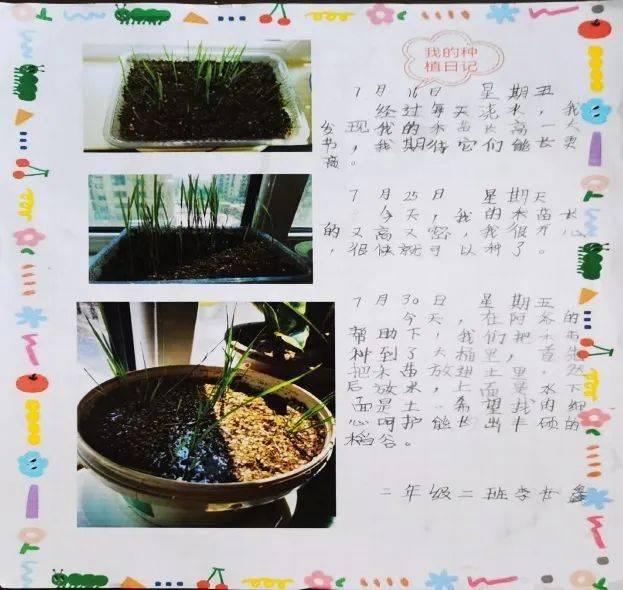 我的种
植日记
7月16日 星期五
经过每天浇水，我
发现我的禾苗长高一大
节，我期待它们能长更
高。
7月25日 星期天
今天，我的禾苗长
的又高又密，我很开心
，很快就可以种了。
7月30日 星期五
今天，在阿爷的
帮助下，我们把禾苗
种到了大桶里，首先
把禾苗放进土里，然
后放水，上面是水下
面是土。希望我的细
心呵护能长出丰硕的
稻谷。
二年级二班李 鑫